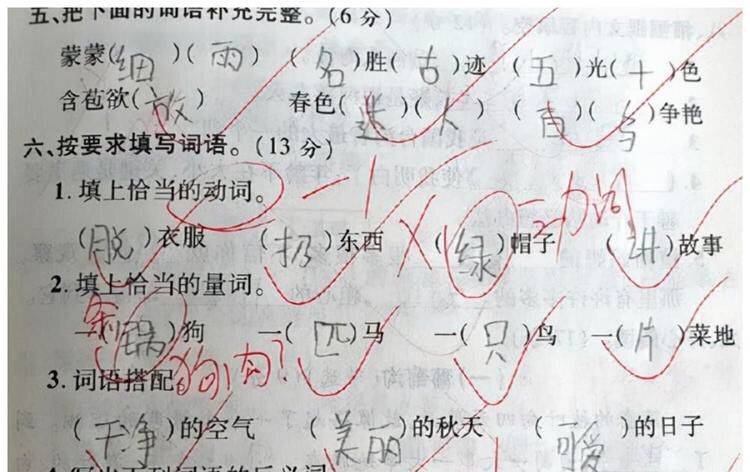 五、把下面的词语补充完整。(6分)
蒙蒙(细)(雨) (名)胜(古)迹 (五)光(十)色
含苞欲(放) 春色(迷)(人) (百)(鸟)争艳
六、按要求填写词语。(13分)
1.填上恰当的动词。 -1 动词
(脱)衣服 (扔)东西 (绿)帽子 (讲)故事
2.填上恰当的量词。
一(锅)狗 一(匹)马 一(只)鸟 一(片)菜地
条 狗肉?
3.词语搭配
(干净)的空气 (美丽)的秋天 (可爱)的日子